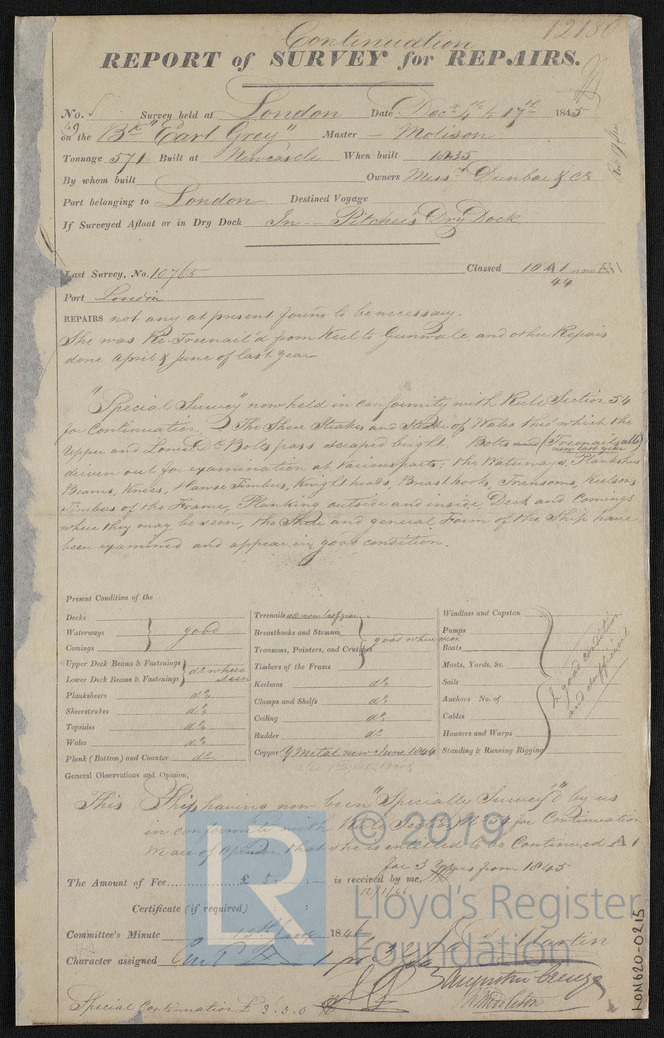 12180
Continuation
REPORT of SURVEY for REPAIRS.
No. Survey held at London Date Decr 4th & 17th 1845
on the Bk "Earl Grey" Master - Molison
Tonnage 571 Built at Newcastle When built 1835
By whom built Owners Messrs Dunbar & Co
Port belonging to London Destined Voyage
If Surveyed Afloat or in Dry Dock In Pitchers Dry Dock
Last Survey, No. 10765 Classed 10 A1 now
44
Port London
REPAIRS not any at present found to be necessary.
She was Re-Treenail'd from Keel to Gunwale and other Repairs
done April & June of last year
"Special Survey" now held in conformity with Rule Section 54
for Continuation, The Sheer Strakes and Strake of Wales thro' which the
Upper and Lower Dk Bolts pass scraped bright. Bolts and (Treenails all
new last year)
driven out for examination at various parts; the Waterways, Planksheers
Beams, Knees, Hawse Timbers, Knightheads, Breasthooks, Transoms, Keelsons
Timbers of the Frame, Planking outside and inside, Deck and Comings
where they may be seen, the Side and general Form of the Ship have
been examined and appear in good condition.
Present Condition of the
Decks
Waterways good
Comings
Upper Deck Beams & Fastenings
Lower Deck Beams & Fastenings do where seen
Planksheers do
Sheerstrakes do
Topsides do
Wales do
Plank (Bottom) and Counter do
Treenails all new last year
Breasthooks and Stemson
Transoms, Pointers, and Crutches good where seen
Timbers of the Frame
Keelsons do
Clamps and Shelfs do
Ceiling do
Rudder do
Copper Y Metal new June 1844
Windlass and Capstan
Pumps
Boats
Masts, Yards, &c.
Sails
Anchors No. of
Cables
Hawsers and Warps
Standing & Running Rigging
In good condition
and sufficient
General Observations and Opinion,
This Ship having now been "Specially Survey'd" by us
in conformity with Rule Section 54 for Continuation
We are of Opinion that she is entitled to be Continued A1
for 3 Years from 1845
The Amount of Fee £ 5 : : is received by me,
12/1/46
Certificate (if required)
Committee's Minute 1846
Character assigned
Augustin Creuze
Special Continuation £ 3.3.0
© 2019
LR
Lloyd's Register
Foundation
LON620-0215